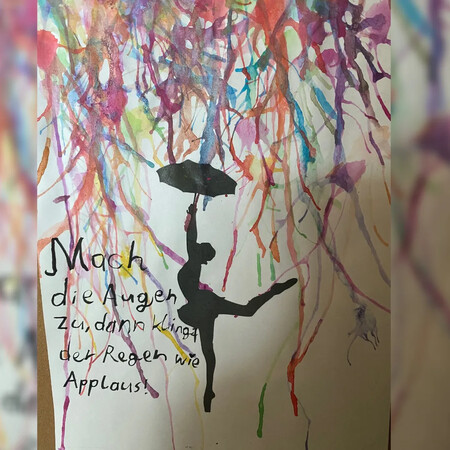 Mach
die Augen
zu, dann klingt
der Regen wie
Applaus!